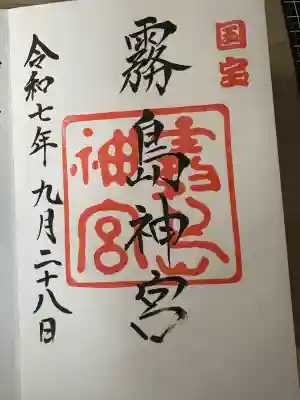 国宝
霧島神宮
霧島神宮
令和七年九月二十八日